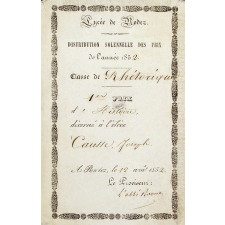 Lycée de Rodez.
DISTRIBUTION SOLENNELLE DES PRIX
de l'année 1852.
Classe de Rhétorique
1er PRIX
d'Histoire,
décerné à l'élève
Causse, Joseph
A Rodez, le 12 août 1852
Le Proviseur:
l'abbé